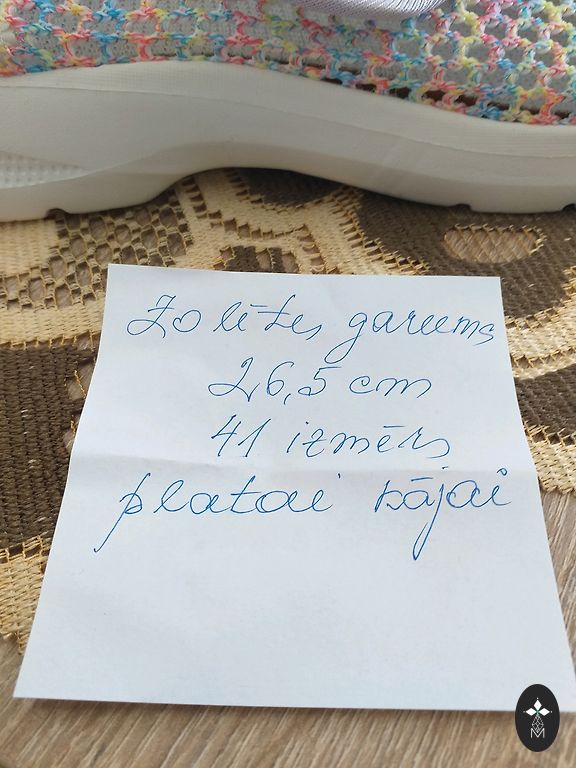 Zolītes garums
26,5 cm
41 izmērs
platai kājai
M